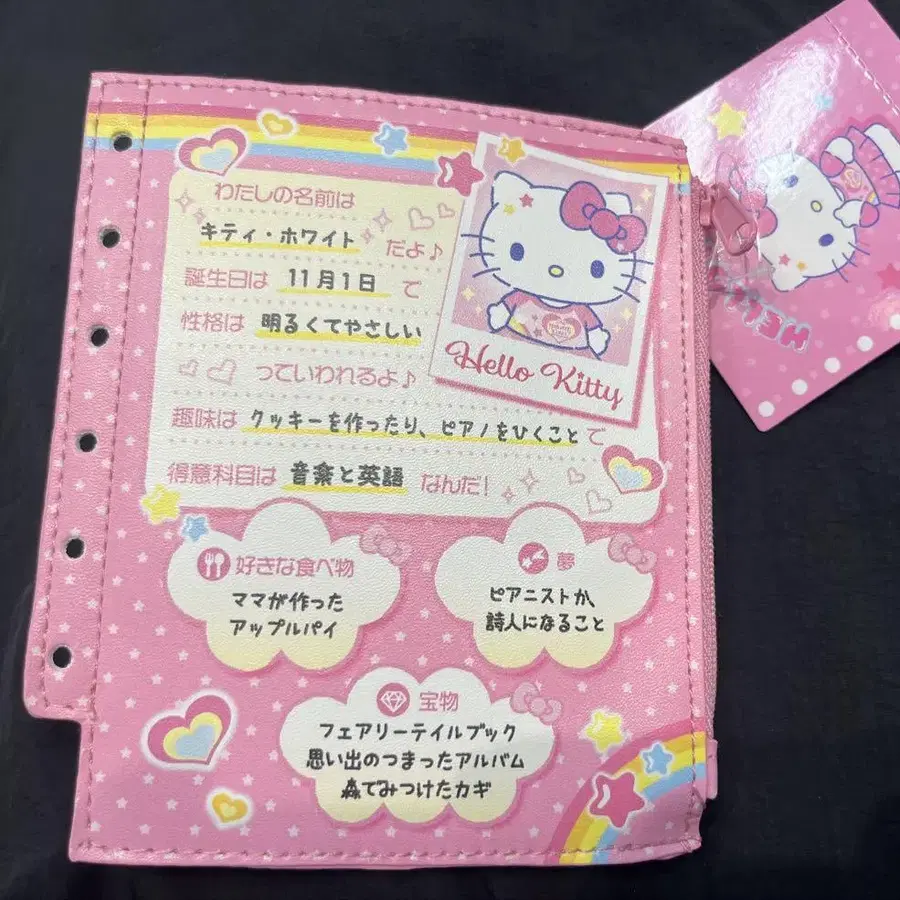 わたしの名前は
キティ・ホワイト だよ♪
誕生日は 11月1日 で
性格は 明るくてやさしい
っていわれるよ♪
趣味は クッキーを作ったり、ピアノをひくこと で
得意科目は 音楽と英語 なんだ!
Hello Kitty
好きな食べ物
ママが作った
アップルパイ
夢
ピアニストか、
詩人になること
宝物
フェアリーテイルブック
思い出のつまったアルバム
森でみつけたカギ